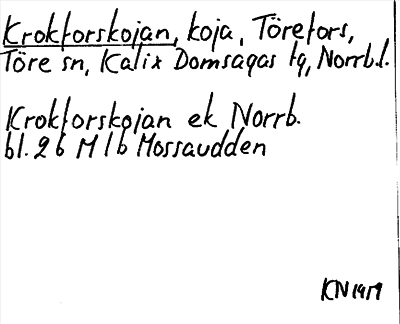 Krokforskojan, koja, Törefors,
Töre sn, Kalix Domsagas tg, Norrb.l.
Krokforskojan ek Norrb.
bl. 26 M 1b Mossaudden